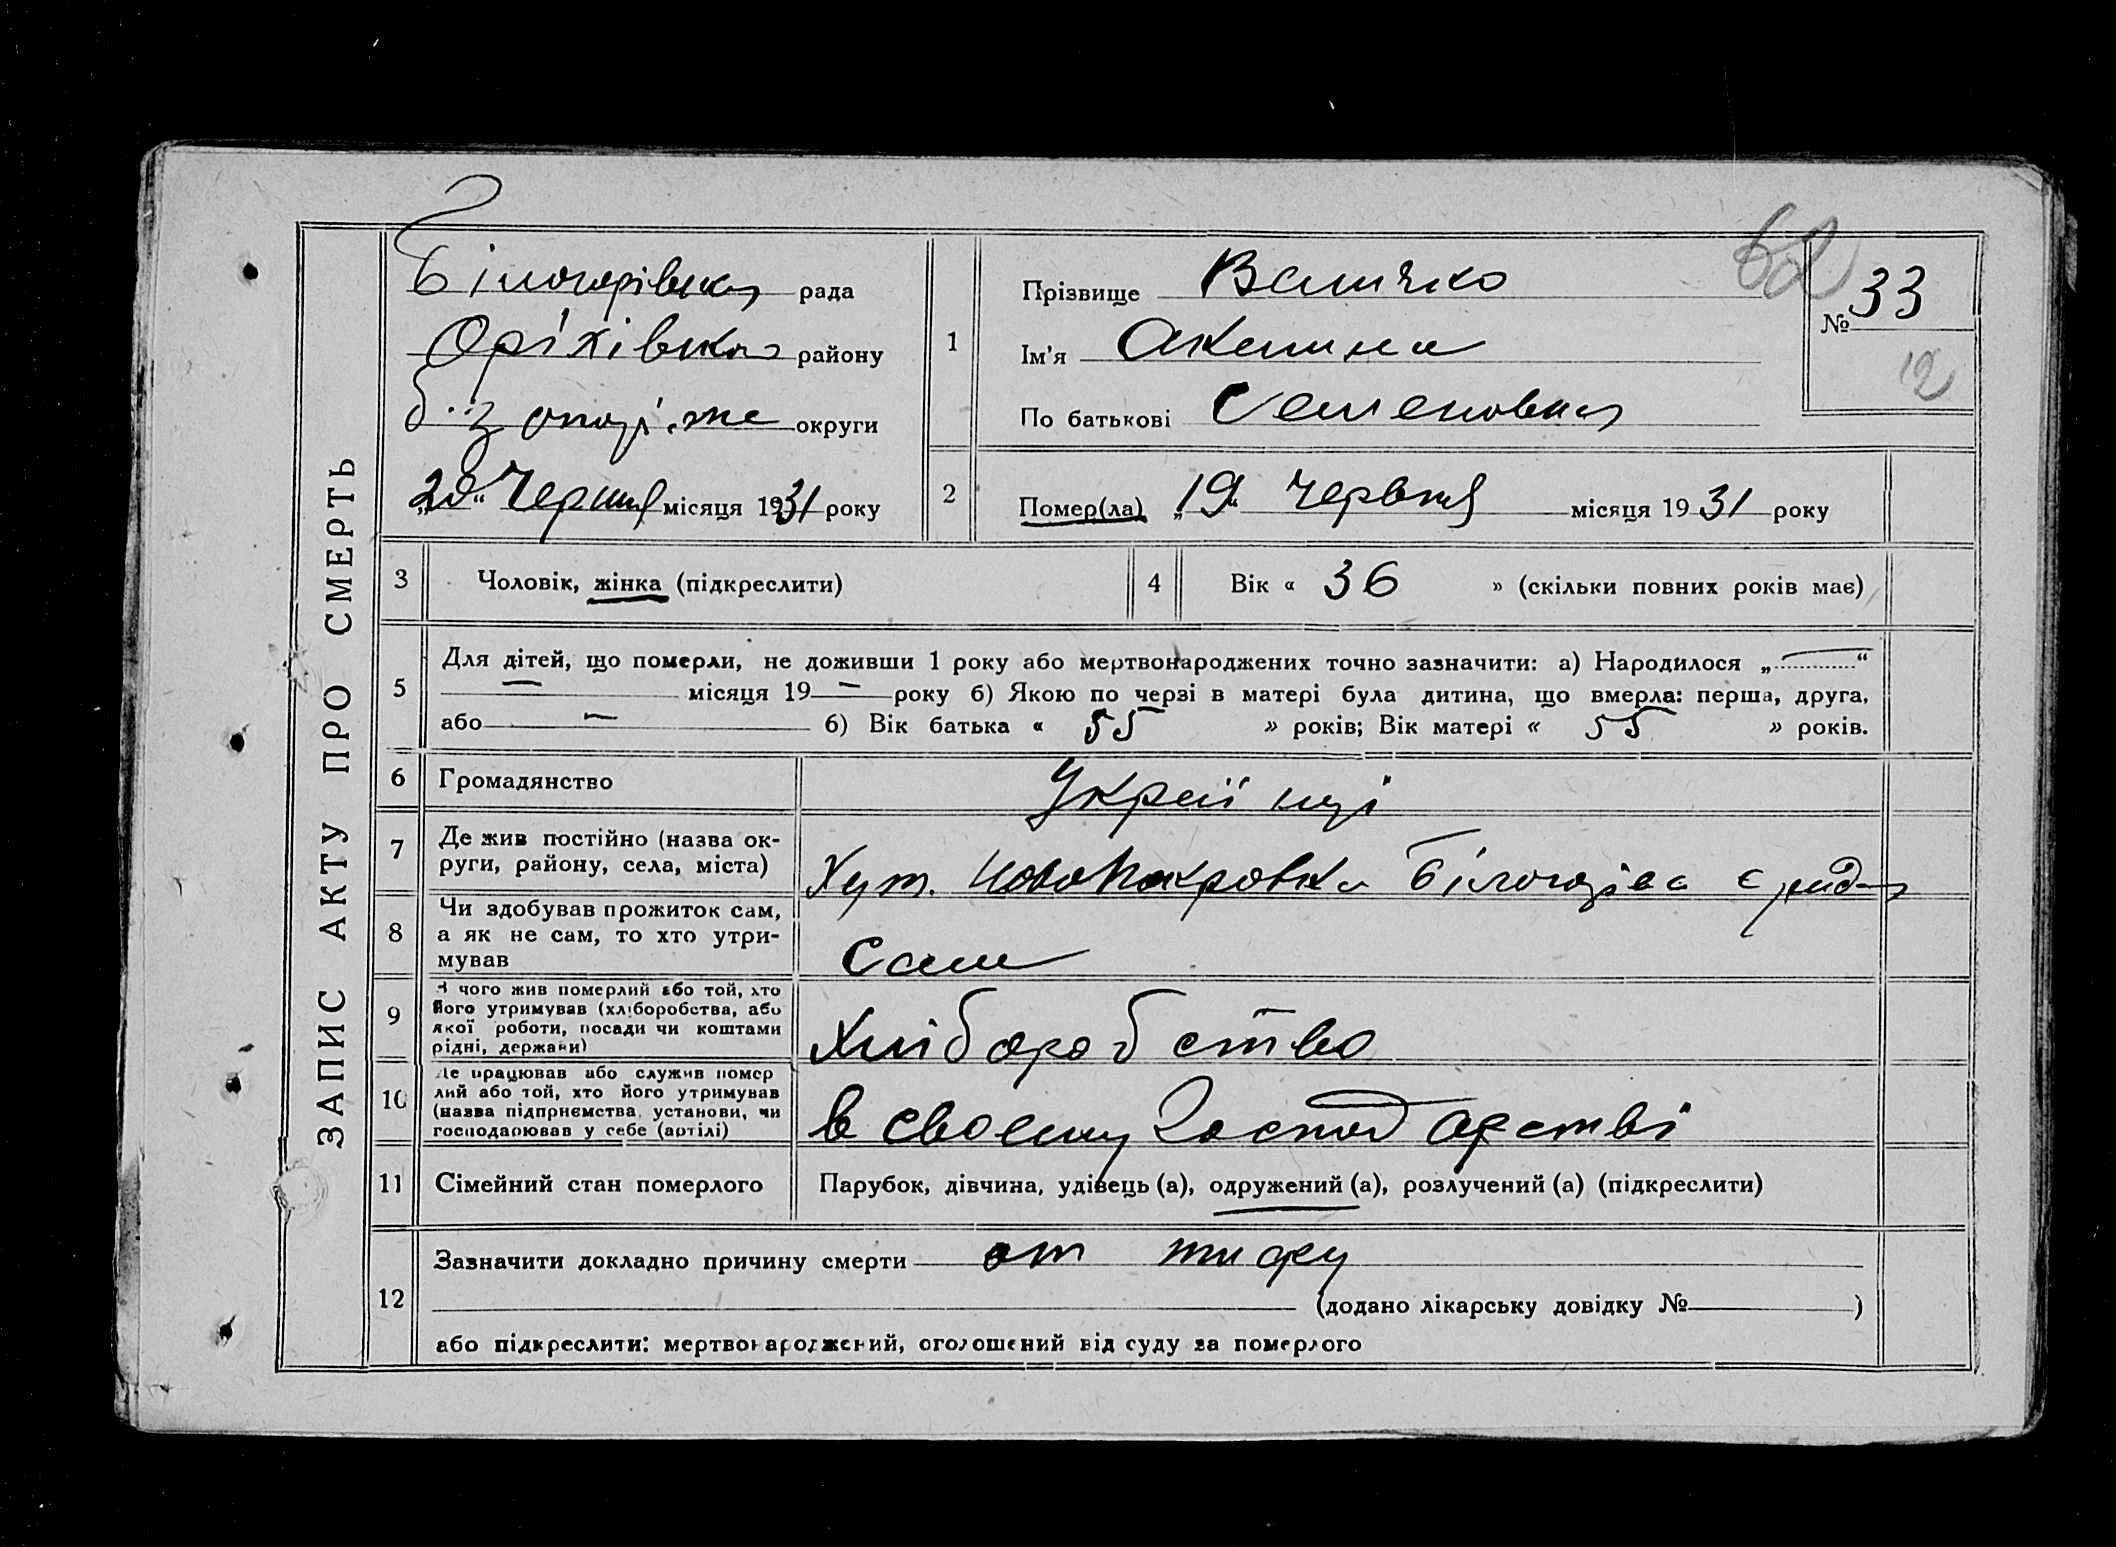 ЗАПИС АКТУ ПРО СМЕРТЬ
Білогорівска рада
Оріхівска району
округи
„20“ Червня місяця 1931 року
1
Прізвище Величко
Ім'я Акелина
По батькові Семеновна
62
№ 33
12
2 Помер(ла) „19“ Червня місяця 1931 року
3 Чоловік, жінка (підкреслити)
4 Вік « 36 » (скільки повних років має)
5 Для дітей, що померли, не доживши 1 року або мертвонароджених точно зазначити: а) Народилося „ — “
— місяця 19 — року б) Якою по черзі в матері була дитина, що вмерла: перша, друга,
або — б) Вік батька « 55 » років; Вік матері « 55 » років.
6 Громадянство Україні
7 Де жив постійно (назва ок-
руги, району, села, міста) Хут. Новопокровка
8 Чи здобував прожиток сам,
а як не сам, то хто утри-
мував Сама
9 З чого жив померлий або той, хто
його утримував (хліборобства, або
якої роботи, посади чи коштами
рідні, держави) Хліборобство
10 Де працював або служив помер
лий або той, хто його утримував
(назва підприємства, установи, чи
господарював у себе (артілі) в своему господарстві
11 Сімейний стан померлого Парубок, дівчина, удівець (а), одружений (а), розлучений (а) (підкреслити)
12 Зазначити докладно причину смерти от тифу
(додано лікарську довідку № )
або підкреслити: мертвонароджений, оголошений від суду за померлого